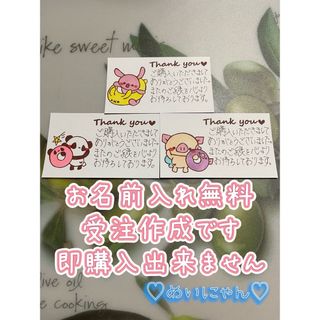 ike sweet m
Thank you♥
ご購入いただきまして
ありがとうございました。
またのご縁を心より
お待ちしております。
Thank you♥
ご購入いただきまして
ありがとうございました。
またのご縁を心より
お待ちしております。
Thank you♥
ご購入いただきまして
ありがとうございました。
またのご縁を心より
お待ちしております。
お名前入れ無料
受注作成です
即購入出来ません
♡めいにゃん♡
live oil
e cooking